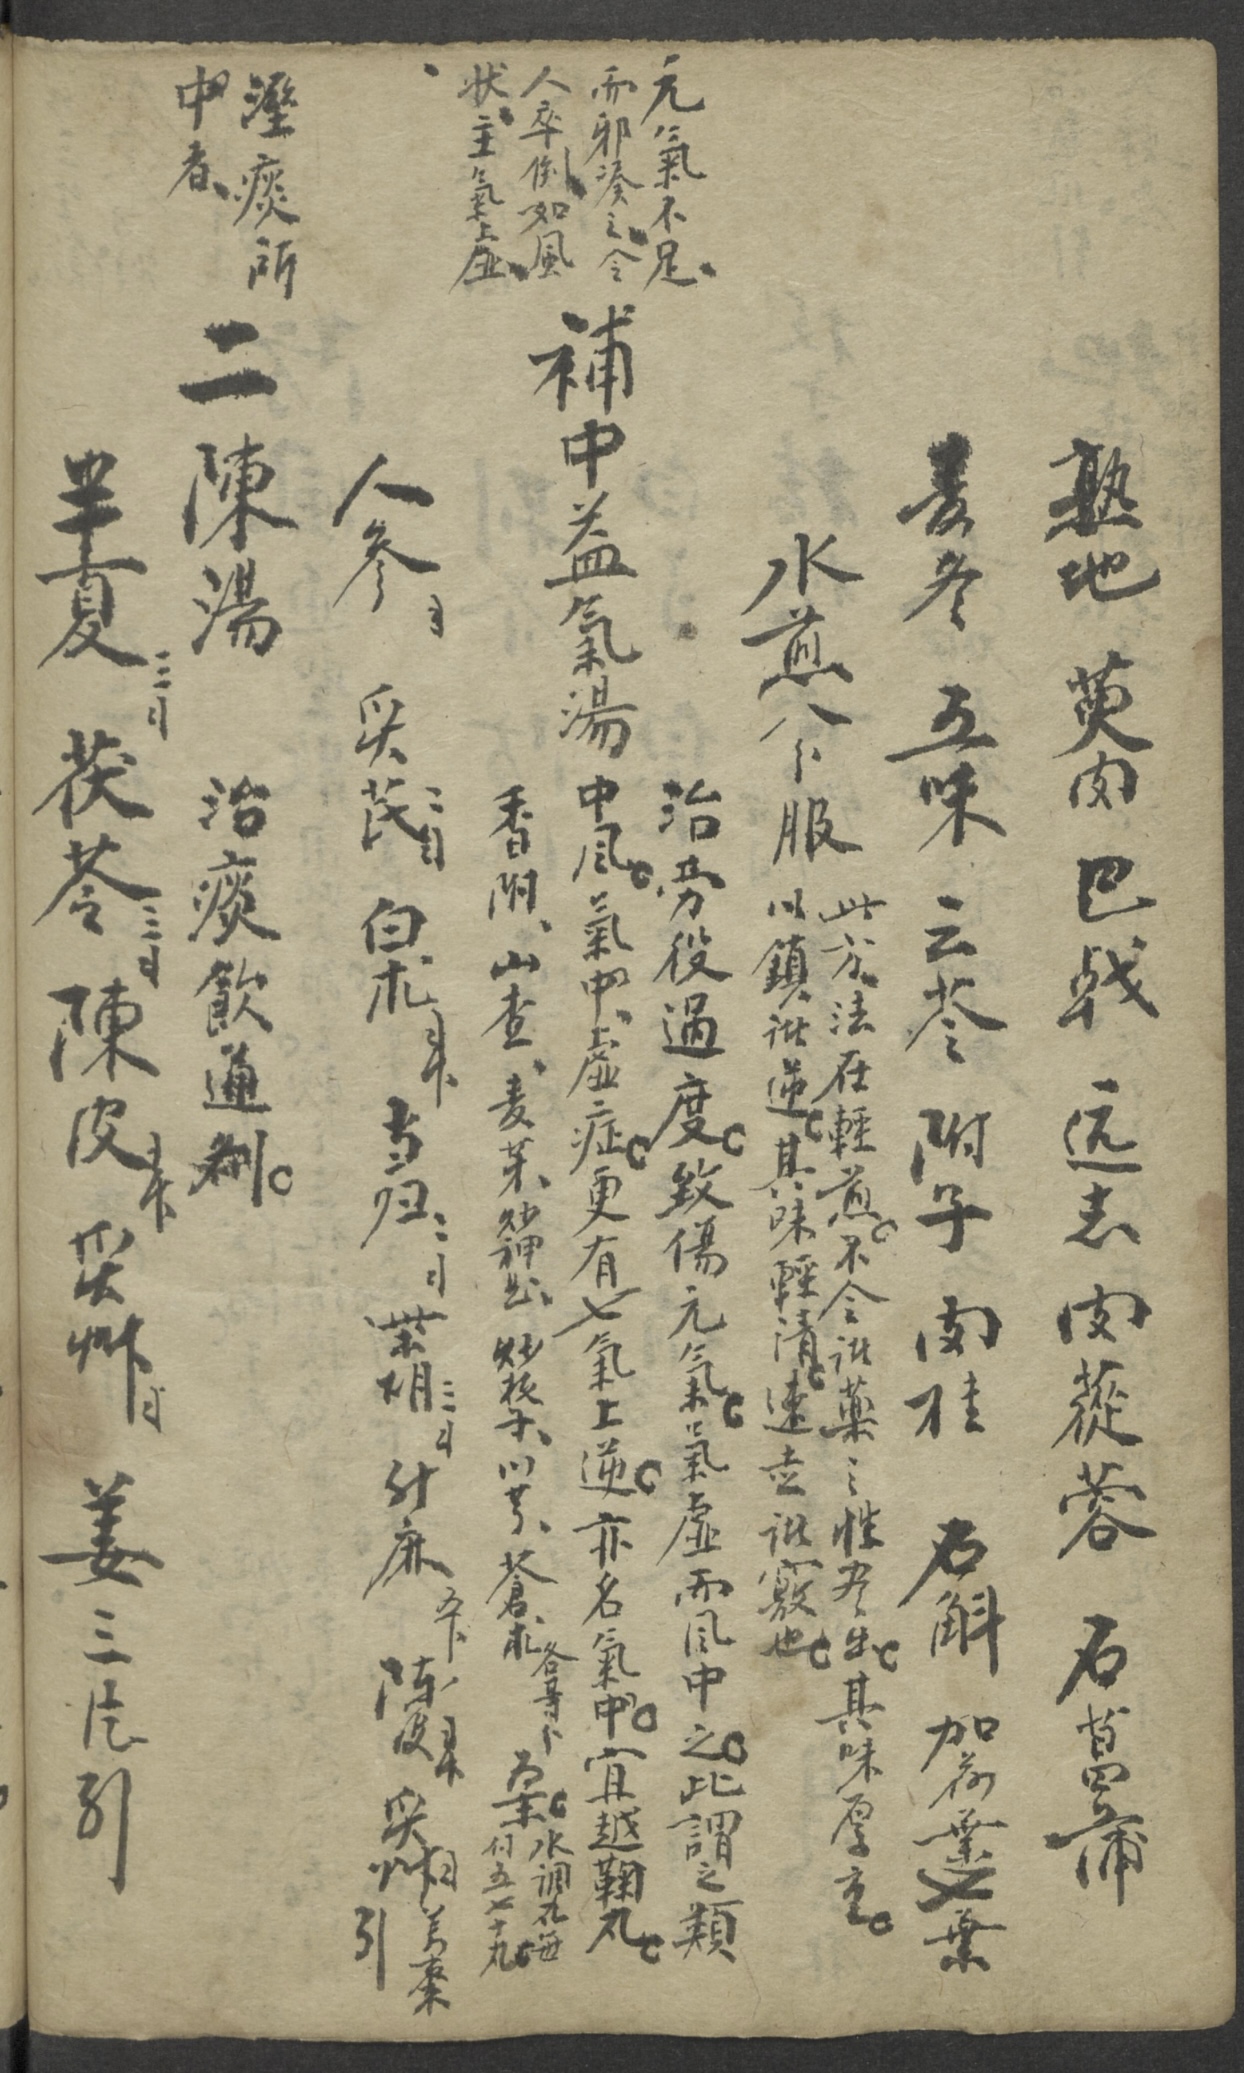 熟地 萸肉 巴戟 远志 肉蓯蓉 石菖蒲
麦冬 五味 云苓 附子 肉桂 石斛 加荷葉七葉
水煎八分服
此方法在輕煎不令諸藥之性尽出其味厚重
以鎮諸逆其味輕清速走諸竅也
元氣不足
而邪湊之令
人卒倒如風
状主氣上虛
補中益氣湯
治劳役過度致傷元氣氣虛而风中之此謂之類
中风氣中虛症更有七氣上逆亦名氣中宜越鞠丸
香附、山查、麦芽、炒神曲、炒梔子、川芎、蒼朮各等分 為末水調丸每付五七十丸
人參 炙芪 白朮 当归 柴胡 升麻 陳皮 炙艸 姜棗引
溼痰所
中者
二陳湯 治痰飲通剤
半夏三戋 茯苓三戋 陳皮 炙艸 姜三片引